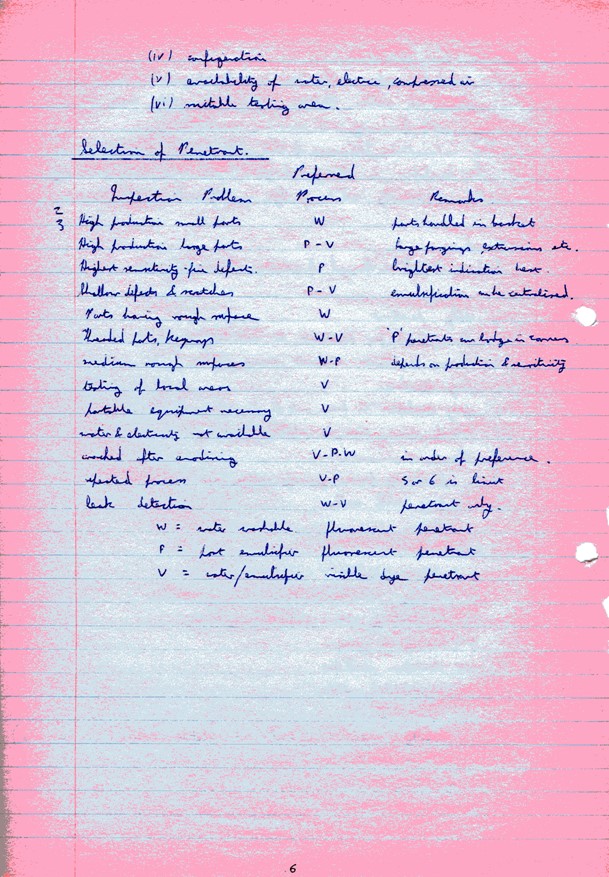 (iv) configeration
(v) availability of water, electrice, compressed air
(vi) suitable testing area.
Selection of Penetrant.
Preferred
Inspection Problem Process Remarks
2
3
High production small parts W parts handled in basket
High production large parts P-V large forgings, extensions etc.
Highest sensitivity-fine defects. P brightest indication best.
Shallow defects & scratches P-V emulsification can be controlised.
Parts having rough surface W
Threaded parts, keyways W-V 'P' penetrates can lodge in corners
medium rough surfaces W-P depends on production & sensitivity
testing of local areas V
portable equipment necessary V
water & electricity not available V
cracked after anodining V-P-W in order of preference.
repeated process V-P 5 or 6 is limit
leak detection W-V penetrant only.
W = water washable fluorescent penetrant
P = post emulsifier fluorescent penetrant
V = water/emulsifier visible dye penetrant
6